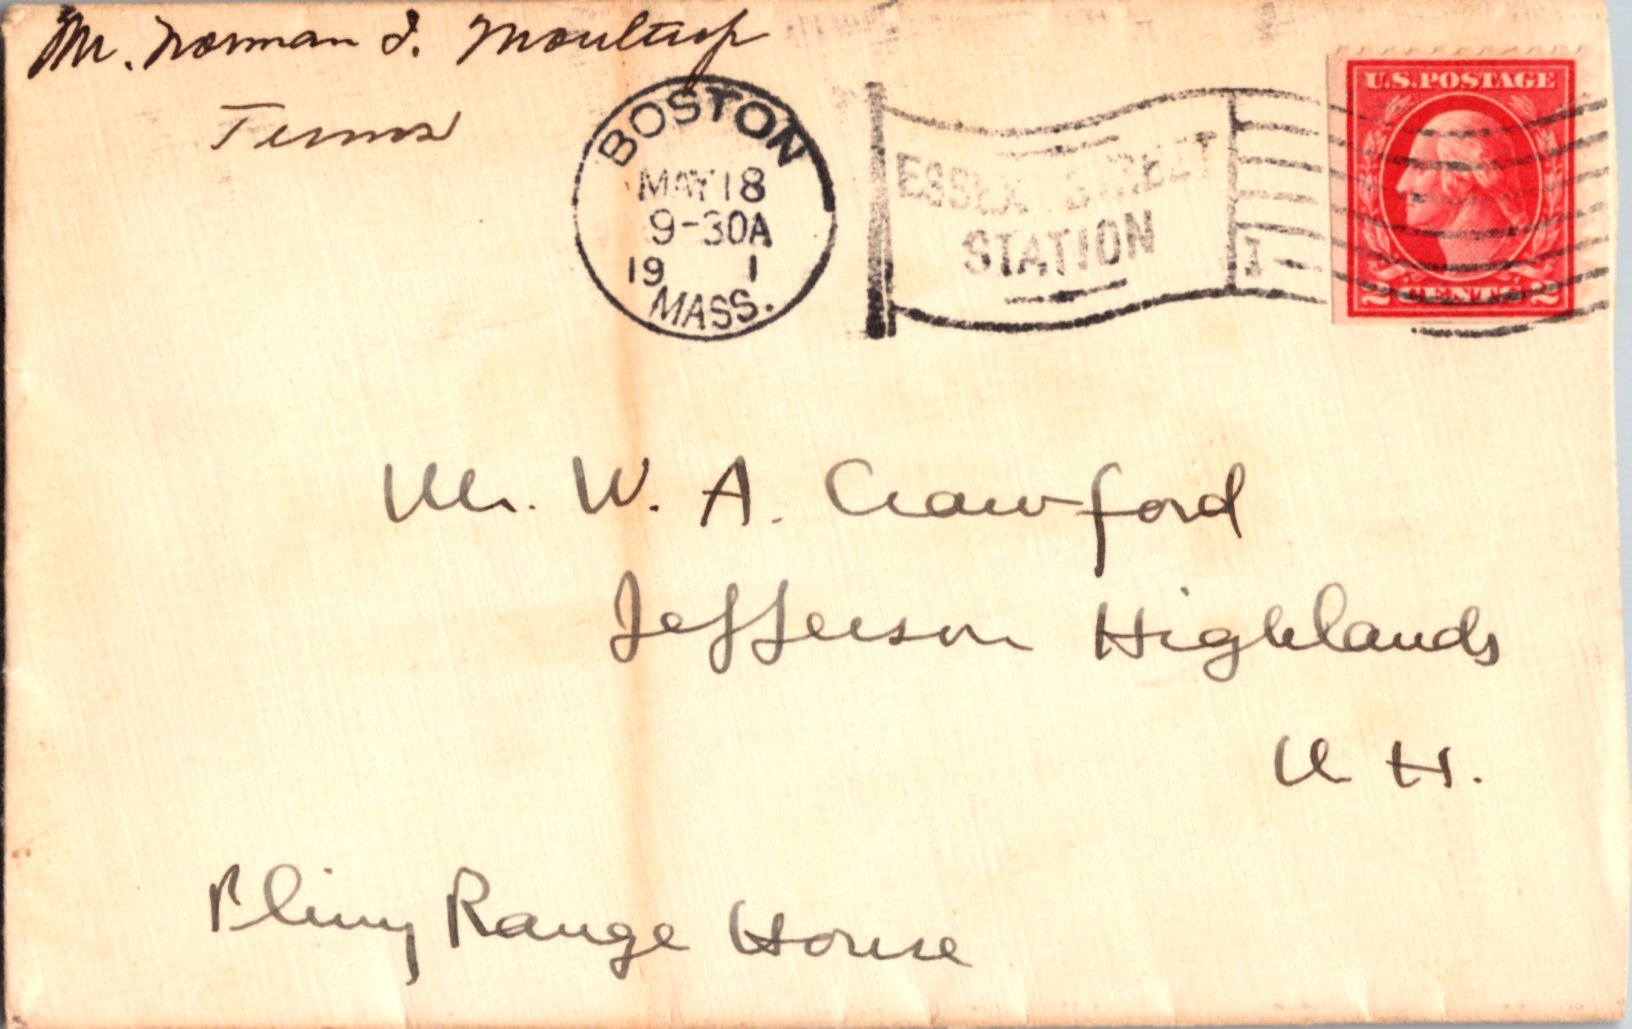 Mr. Norman I. Moultrop
Terms
BOSTON
MAY 18
9-30A
19 1
MASS.
ESSEX STREET
STATION
1
U.S. POSTAGE
2 CENTS 2
Mr. W. A. Crawford
Jefferson Highlands
N H.
Pliny Range House